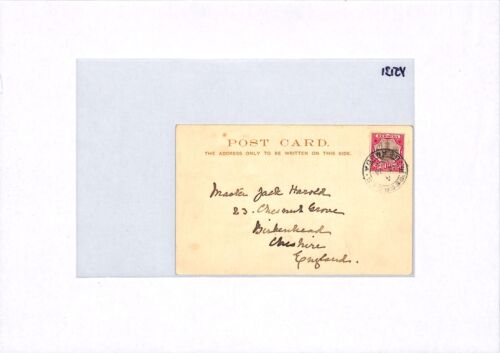 YS131
POST CARD.
THE ADDRESS ONLY TO BE WRITTEN ON THIS SIDE.
BERMUDA
Master Jack Harold
23. Chesnut Grove
Birkenhead
Cheshire
England.